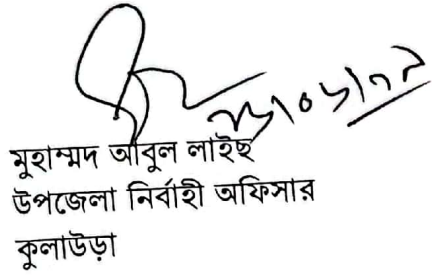 মুহাম্মদ আবুল লাইছ
উপজেলা নির্বাহী অফিসার
কুলাউড়া